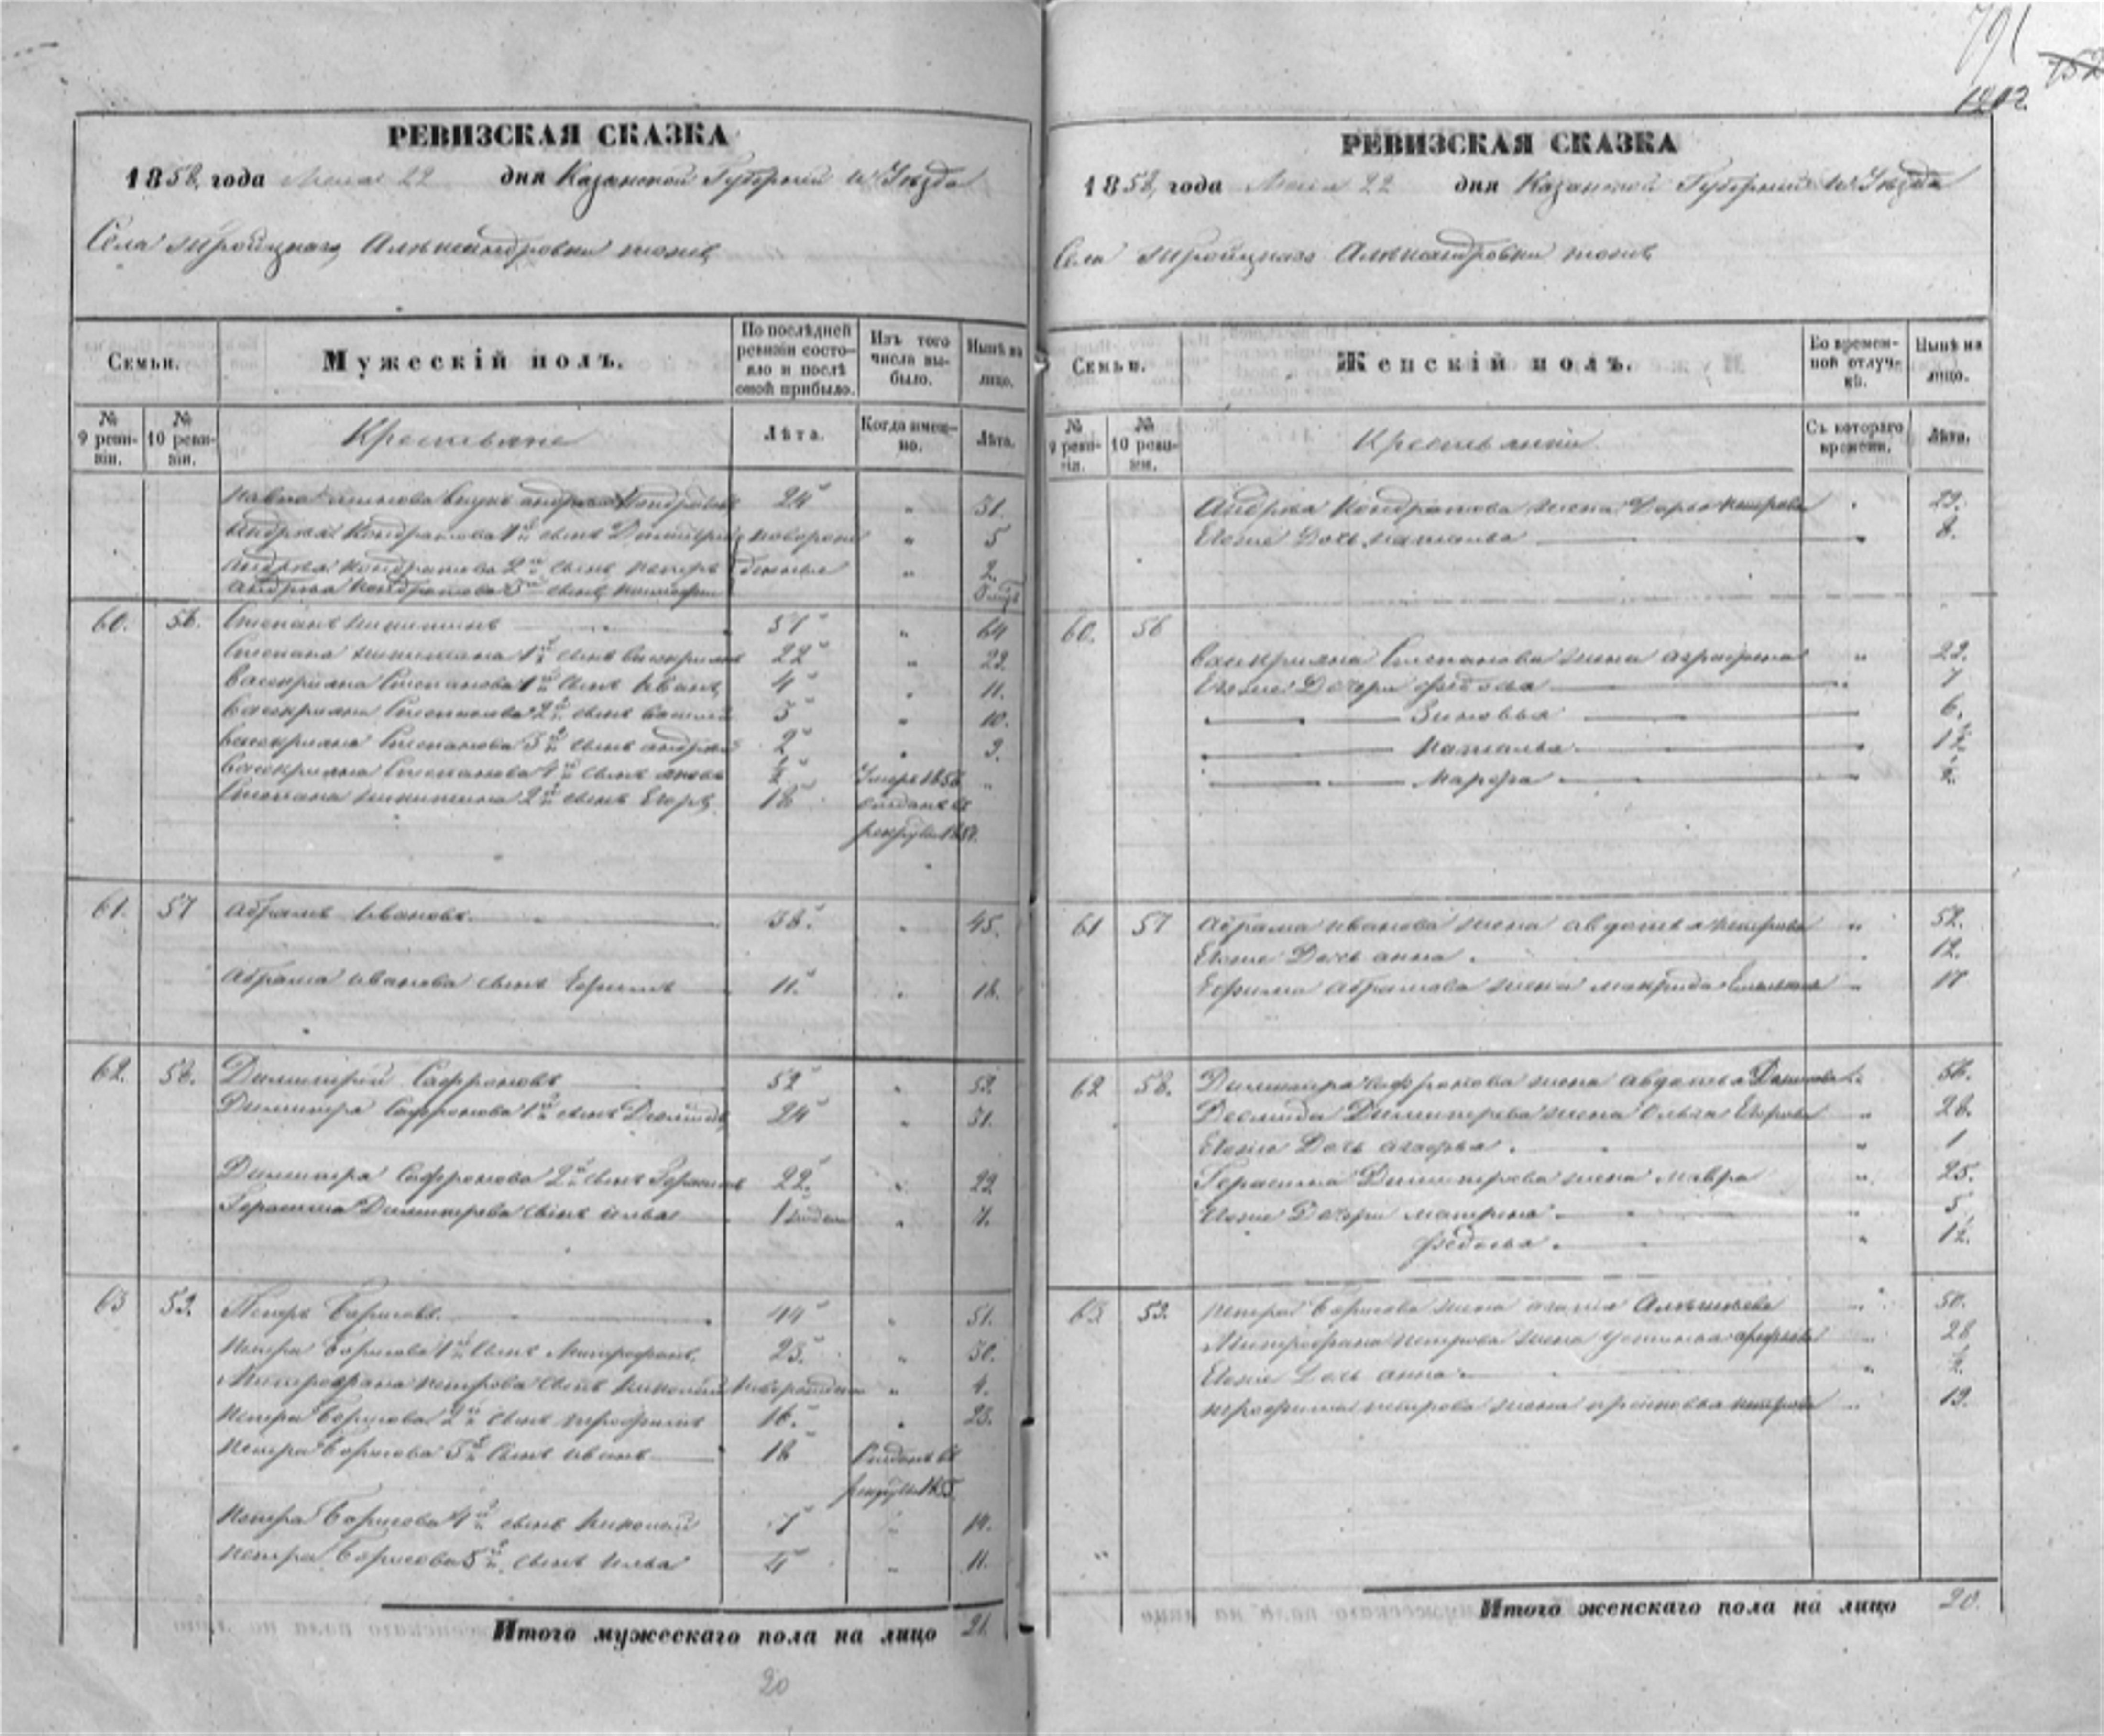 РЕВИЗСКАЯ СКАЗКА
1858 года Маиа 22 дня Казанской Губернiи и Уѣзда
Села Тройцкаго Александровки тожъ
Семьи.
Мужескiй полъ.
По послѣдней ревизiи состояло и послѣ оной прибыло.
Изъ того числа выбыло.
Нынѣ на лицо.
№ 9 ревизiи.
№ 10 ревизiи.
Крестьяне
Лѣта.
Когда именно.
Лѣта.
внукъ Андрей Кондратьевъ 24 „ 31.
Андрея Кондратова 1й сынъ Димитрiй новорож „ 5
Андрея Кондратова 2й сынъ Петръ денные „ 2.
Андрея Кондратова 3й сынъ
60. 56. Степанъ Никитинъ 57 „ 64
Степана Никитина 1й сынъ 22 „ 29.
Степанова 1й сынъ Иванъ 4 „ 11.
Степанова 2й сынъ Василiй 3 „ 10.
Степанова 3й сынъ Андрей 2 „ 9.
Степанова 4й сынъ Яковъ ½ Умеръ 1856 „
Степана Никитина 2й сынъ Егоръ 18 отданъ въ
рекруты
61. 57 Абрамъ Ивановъ 38. „ 45.
Абрама Иванова сынъ Ефимъ 11. „ 18.
62. 58. Димитрiй Сафроновъ 52 „ 59.
Димитрiя Сафронова 1й сынъ 24 „ 31.
Димитрiя Сафронова 2й сынъ Герасимъ 22. „ 29
Герасима Димитрева сынъ Илья 1 „
63 59. Петръ Борисовъ 44 „ 51.
Петра Борисова 1й сынъ Митрофанъ 23. „ 30.
Митрофана Петрова сынъ Николай новорожден „ 4.
Петра Борисова 2й сынъ Трофимъ 16. „ 23.
Петра Борисова 3й сынъ Иванъ 18 отданъ въ
рекруты 1855.
Петра Борисова 4й сынъ Николай 7 „ 14.
Петра Борисова 5й сынъ Илья 4 „ 11.
Итого мужескаго пола на лицо 21.
20
791
752
1202
РЕВИЗСКАЯ СКАЗКА
1858 года Маиа 22 дня Казанской Губернiи и Уѣзда
Села Тройцкаго Александровки тожъ
Семьи.
Женскiй полъ.
Во временной отлучкѣ.
Нынѣ на лицо.
№ 9 ревизiи.
№ 10 ревизiи.
Крестьянки
Съ котораго времени.
Лѣта.
Андрея Кондратова жена Дарья Петрова „ 29.
Егоже Дочь Наталья „ 8.
60. 56
Степанова жена Аграфена „ 29.
Егоже Дочери Федосья „ 7
Зиновья „ 6.
Наталья „ 1½
Марфа „ ½.
61 57 Абрама Иванова жена Авдотья Петрова „ 52.
Егоже Дочь Анна „ 12.
Ефима Абрамова жена Макрида „ 17
62 58. Димитрiя Сафронова жена Авдотья „ 58.
Димитрева жена Ольга Егорова „ 28.
Егоже Дочь Агафья „ 1
Герасима Димитрева жена Мавра „ 25.
Егоже Дочери Матрена „ 5
Федосья „ 1½.
63 59. Петра Борисова жена Алексеева „ 50.
Митрофана Петрова жена Устинья „ 28
Егоже Дочь Анна „ ½.
Трофима Петрова жена Петрова „ 19.
Итого женскаго пола на лицо 20.